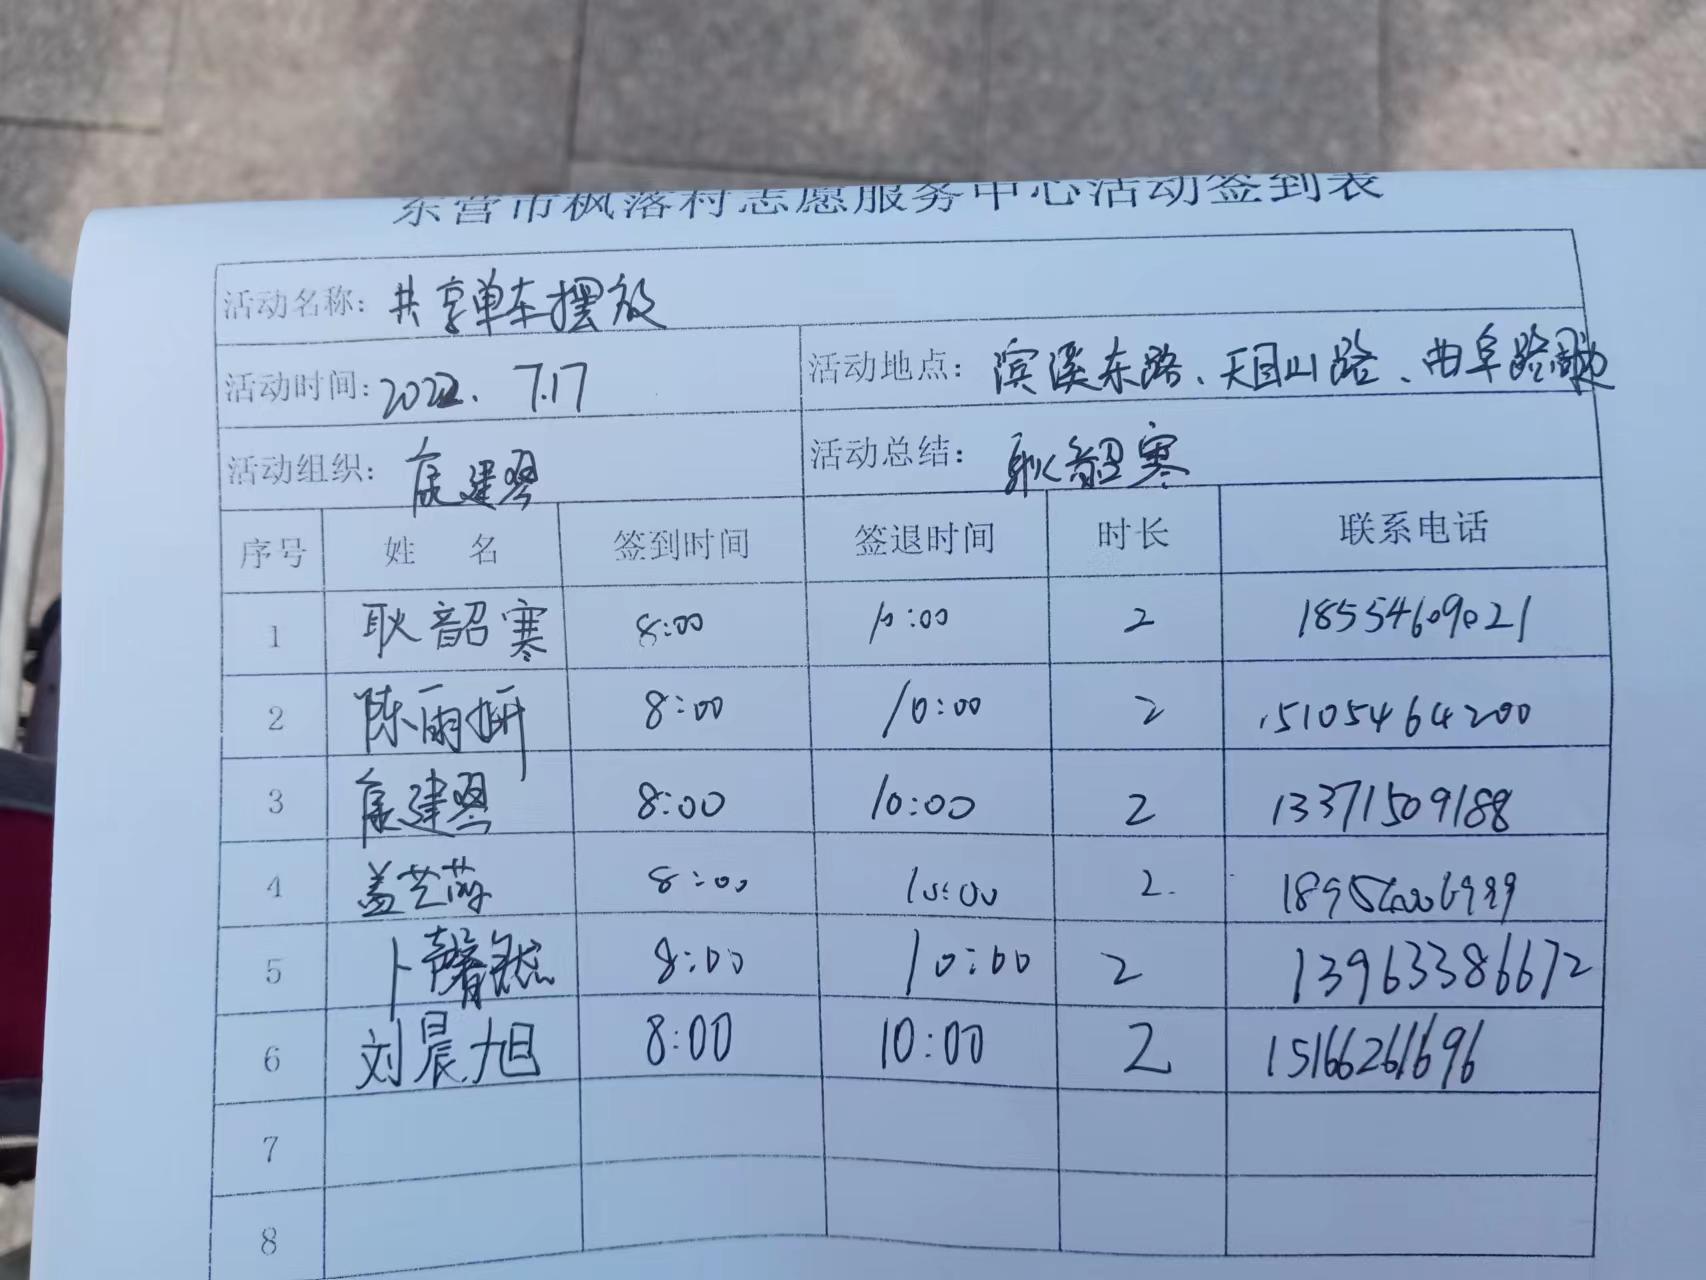 东营市枫落村志愿服务中心活动签到表
活动名称: 共享单车摆放
活动时间: 2022. 7.17 活动地点: 滨溪东路、天目山路、曲阜路周边
活动组织: 康建翠 活动总结: 耿韶寒
序号 姓 名 签到时间 签退时间 时长 联系电话
1 耿韶寒 8:00 10:00 2 18554609021
2 陈雨妍 8:00 10:00 2 15105464200
3 康建翠 8:00 10:00 2 13371509188
4 盖艺 8:00 10:00 2.
5 卜馨然 8:00 10:00 2 13963386672
6 刘晨旭 8:00 10:00 2 15166261696
7
8